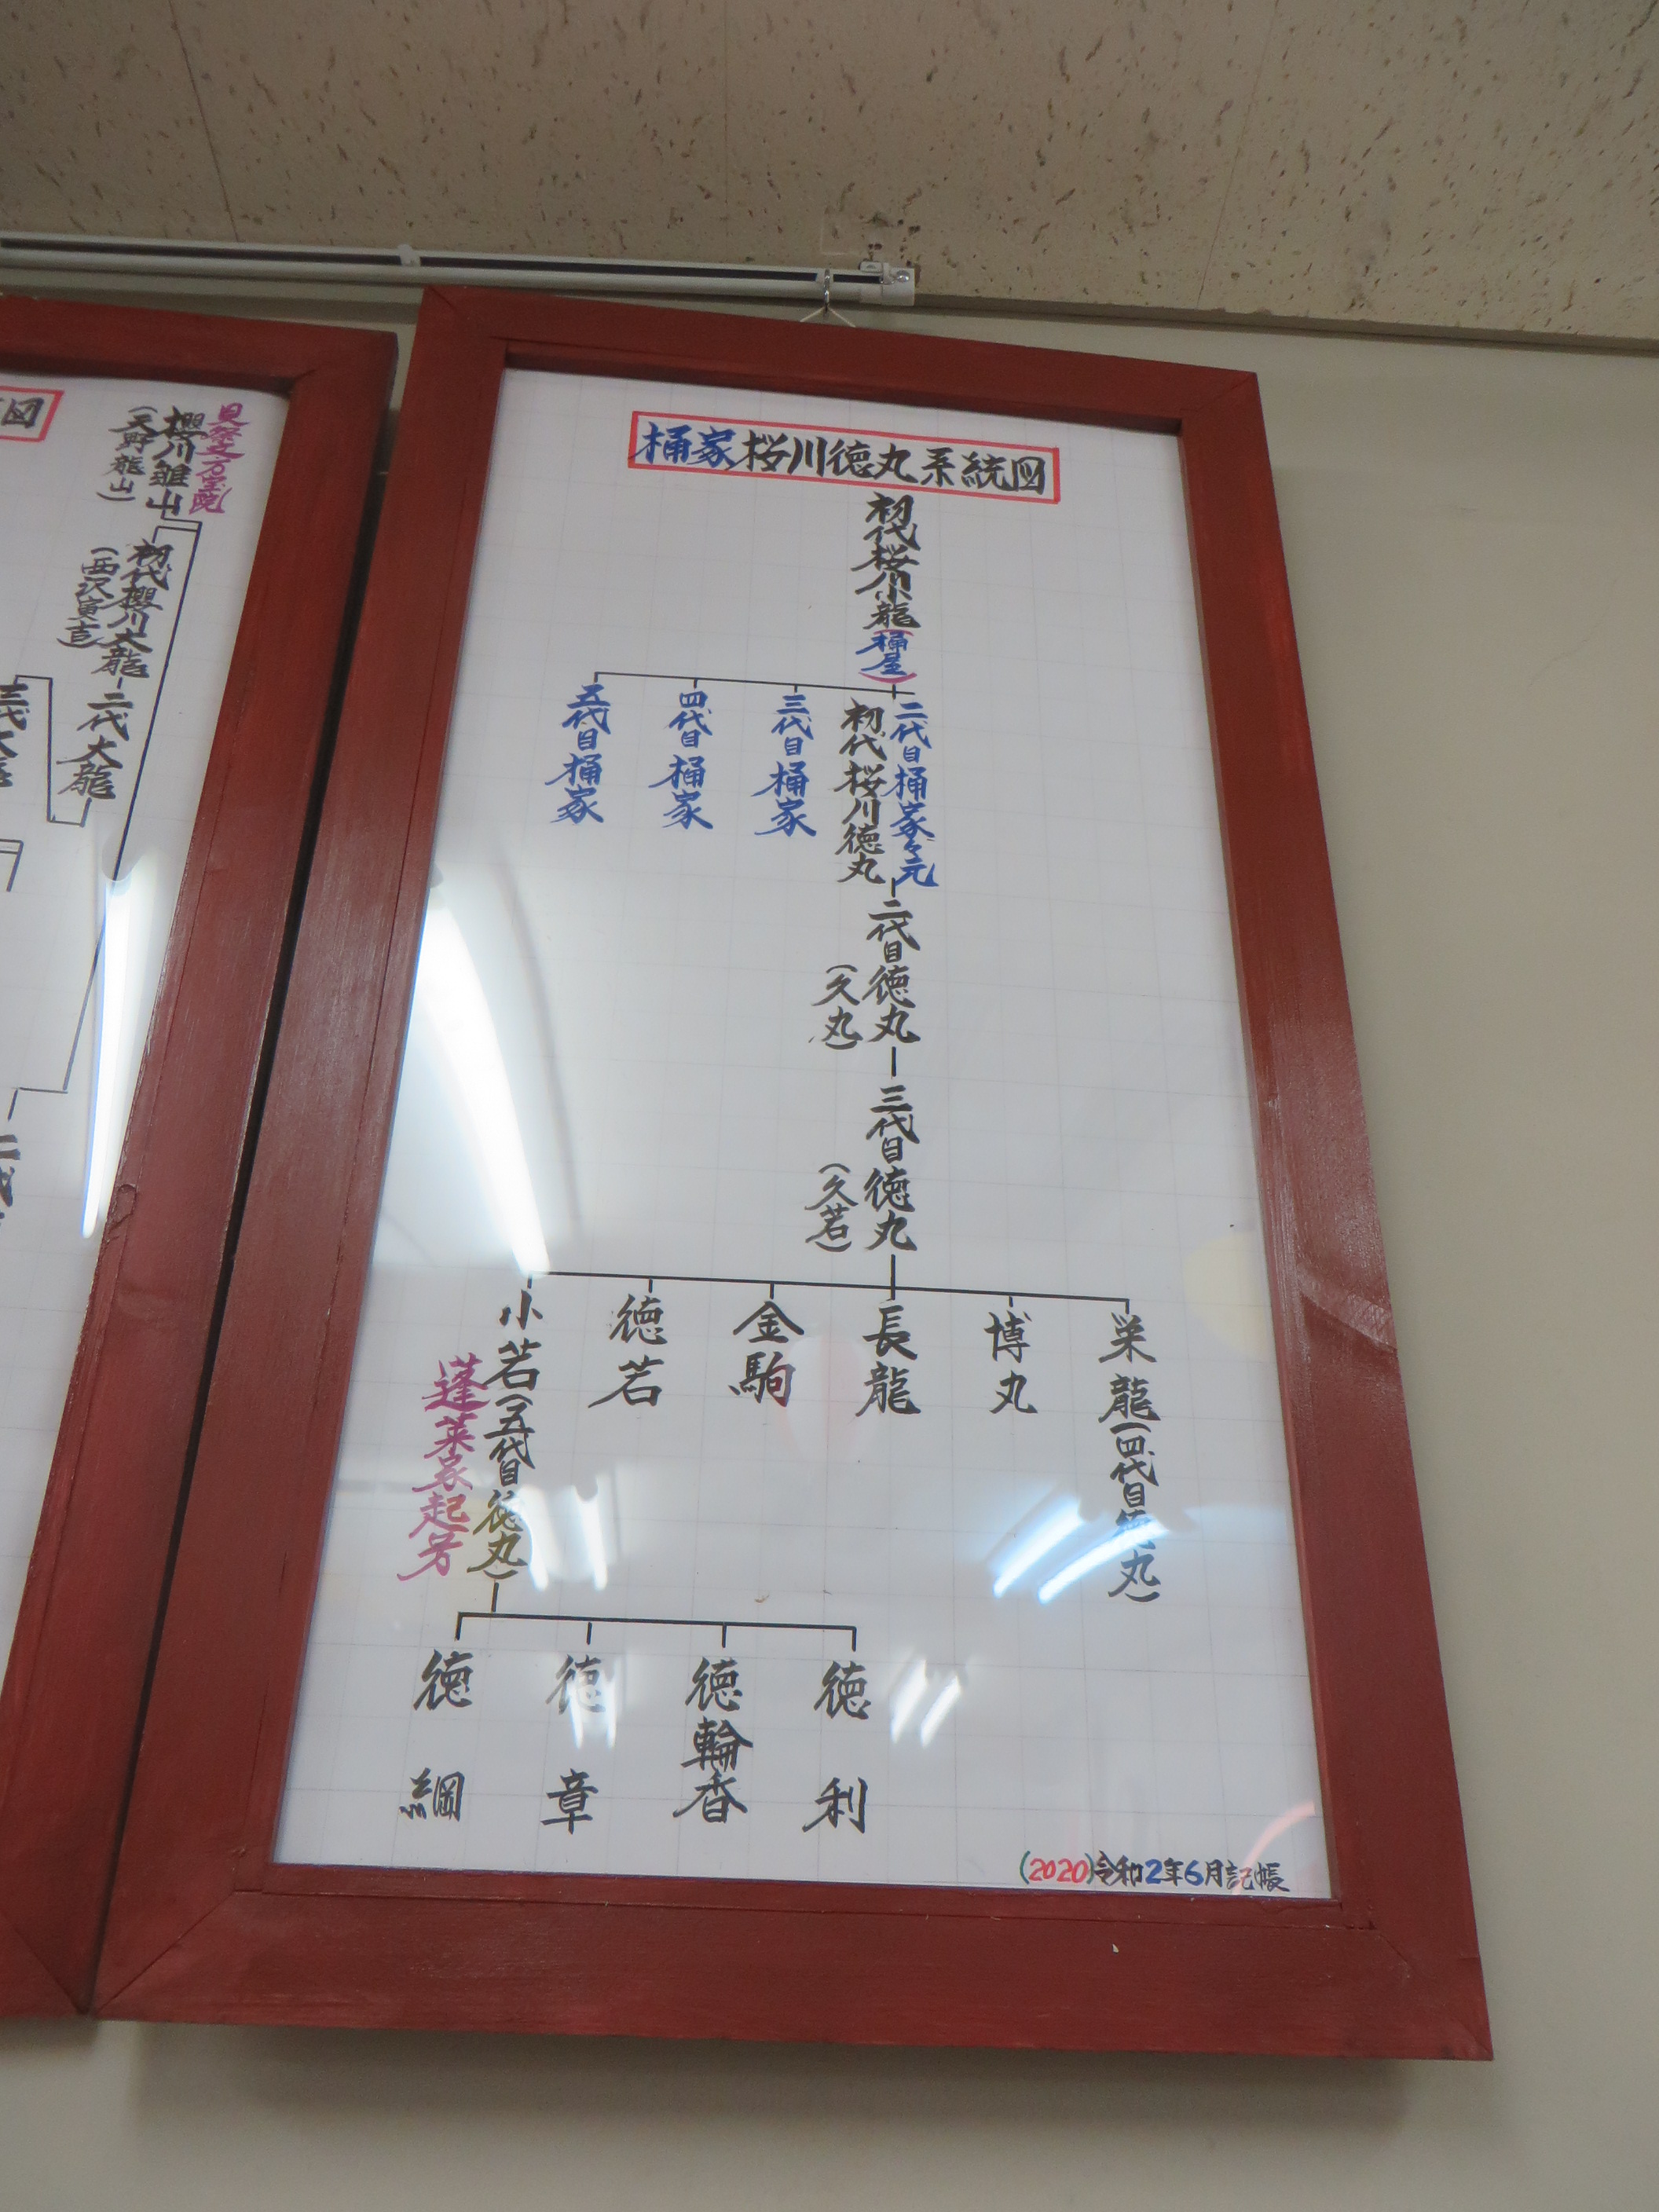 桶家桜川徳丸系統図
初代桜川小龍(桶屋)
二代目桶家々元
初代桜川徳丸
三代目桶家
四代目桶家
五代目桶家
二代目徳丸
(久丸)
三代目徳丸
(久若)
栄龍(四代目徳丸)
博丸
長龍
金駒
徳若
小若(五代目徳丸)
蓬莱家起芳
徳利
徳輪香
徳章
徳綱
(2020)令和2年6月記帳
図
櫻川雛山
(天野龍山)
初代櫻川大龍
(西沢寅吉)
二代大龍